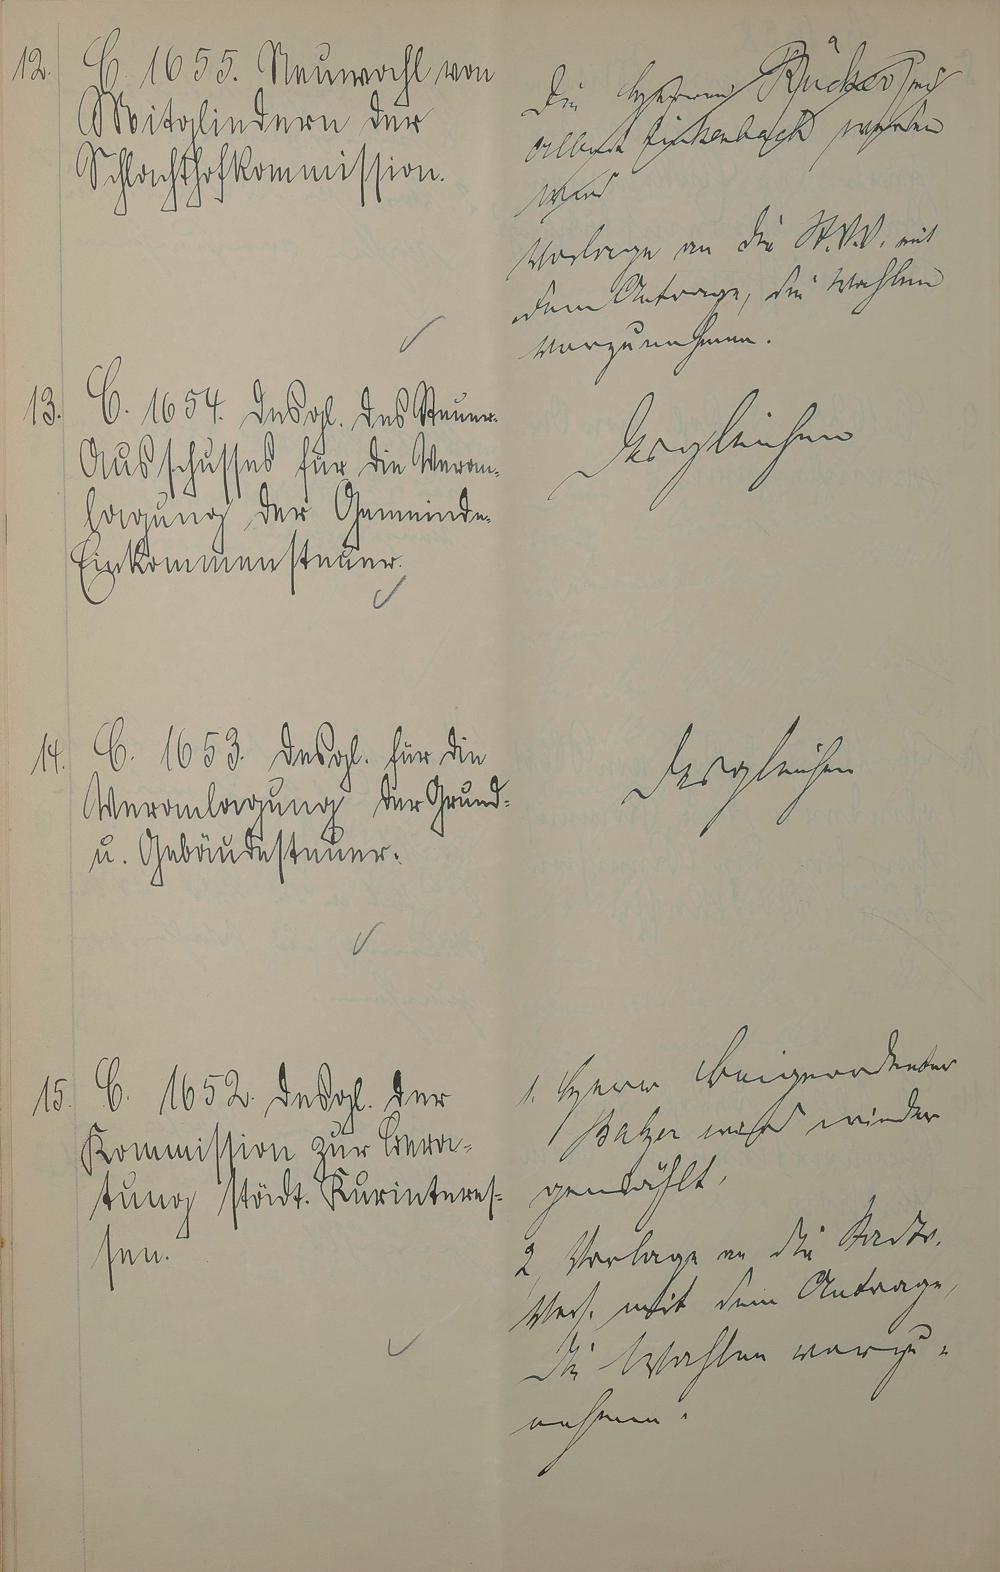 12. C. 1655. Neuwahl von
Mitgliedern der
Schlachthofkommission.
Die Herren Rücker und
Albert Finkenbach werden
wied
Vorlage an die St.V.V. mit
dem Antrage, die Wahlen
vorzunehmen.
13. C. 1654. Desgl. des Steuer-
Ausschusses für die Veran-
lagung der Gemeinde-
Einkommensteuer.
Desgleichen
14. C. 1653. Desgl. für die
Veranlagung der Grund-
u. Gebäudesteuer.
Desgleichen
15. C. 1652. Desgl. der
Kommission zur Bera-
tung städt. Kurinteres-
sen.
1. Herr Beigeordneter
wird wieder
gewählt,
2, Vorlage an die Stadtv.
Vers. mit dem Antrage,
die Wahlen vorzu-
nehmen.